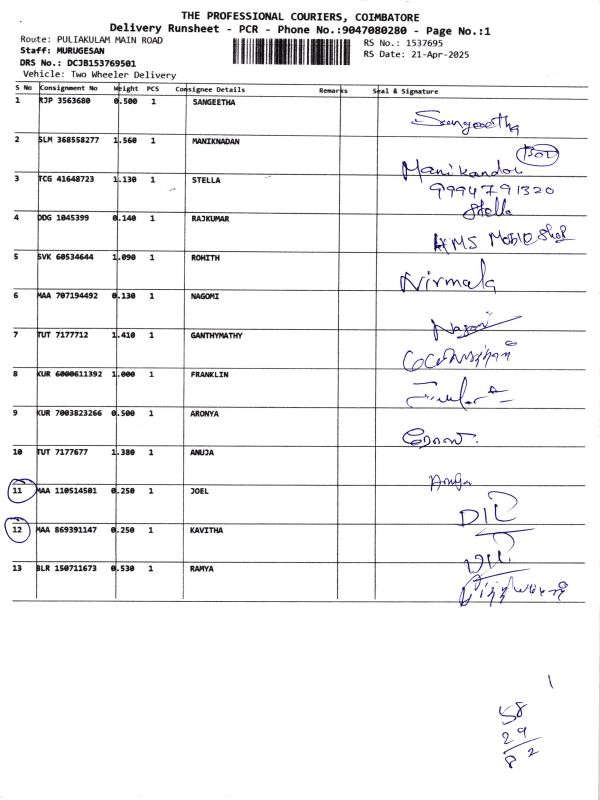 THE PROFESSIONAL COURIERS, COIMBATORE
Delivery Runsheet - PCR - Phone No.:9047080280 - Page No.:1
Route: PULIAKULAM MAIN ROAD
RS No.: 1537695
Staff: MURUGESAN
RS Date: 21-Apr-2025
DRS No.: DCJB153769501
Vehicle: Two Wheeler Delivery
S No Consignment No Weight PCS Consignee Details Remarks Seal & Signature
1 RJP 3563680 0.500 1 SANGEETHA
Sangeetha
2 SLM 368558277 1.560 1 MANIKNADAN
Manikandan
3 TCG 41648723 1.130 1 STELLA
9994791320
Stella
4 DDG 1045399 0.140 1 RAJKUMAR
HMS Mobile Shop
5 SVK 60534644 1.090 1 ROHITH
Nirmala
6 MAA 707194492 0.130 1 NAGOMI
Nagomi
7 TUT 7177712 1.410 1 GANTHYMATHY
8 KUR 6000611392 1.000 1 FRANKLIN
9 KUR 7003823266 0.500 1 ARONYA
10 TUT 7177677 1.380 1 ANUJA
Anuja
11 MAA 110514501 0.250 1 JOEL
DIL
12 MAA 869391147 0.250 1 KAVITHA
DIL
13 BLR 150711673 0.530 1 RAMYA
58
29
82